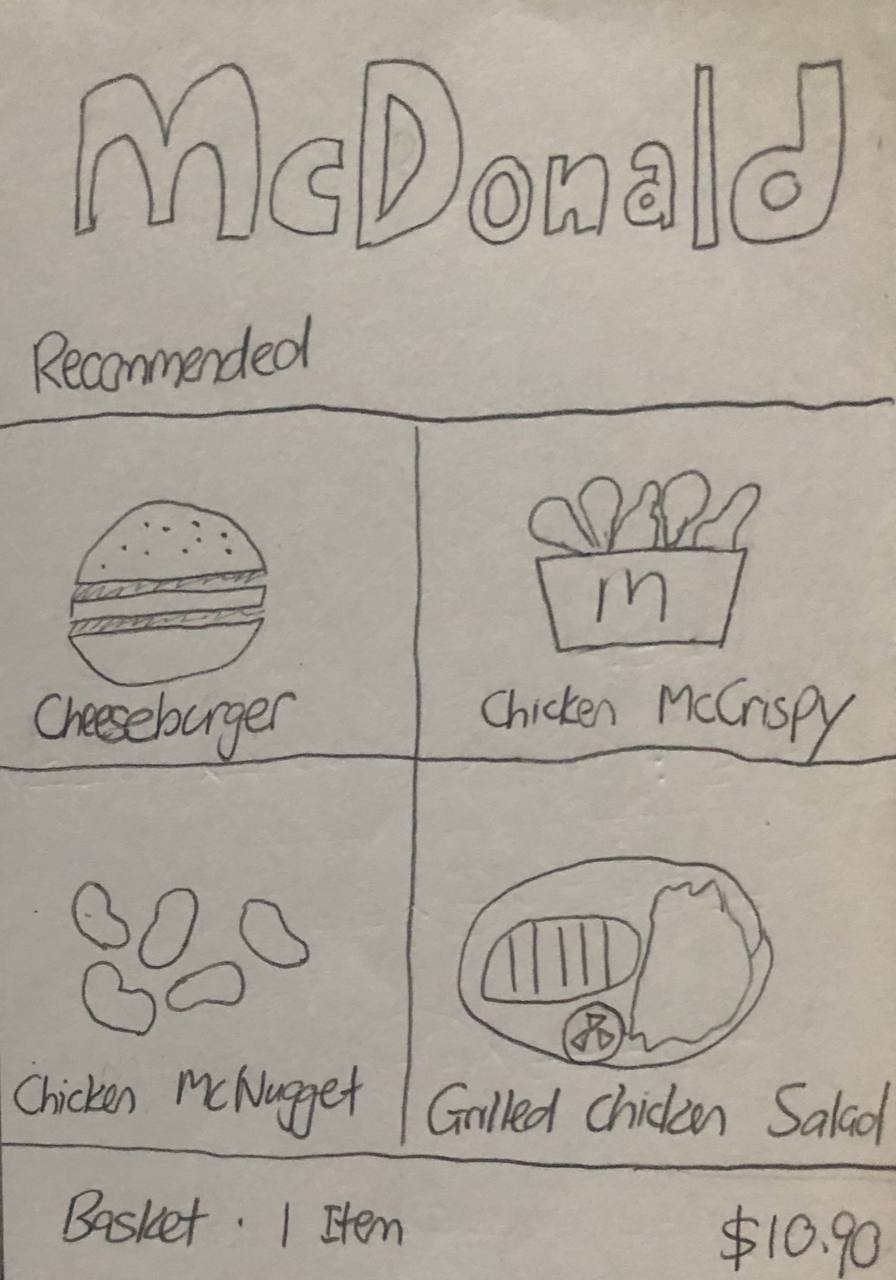 McDonald
Recommended
m
Cheeseburger
Chicken McCrispy
Chicken McNugget
Grilled Chicken Salad
Basket · 1 Item
$10.90